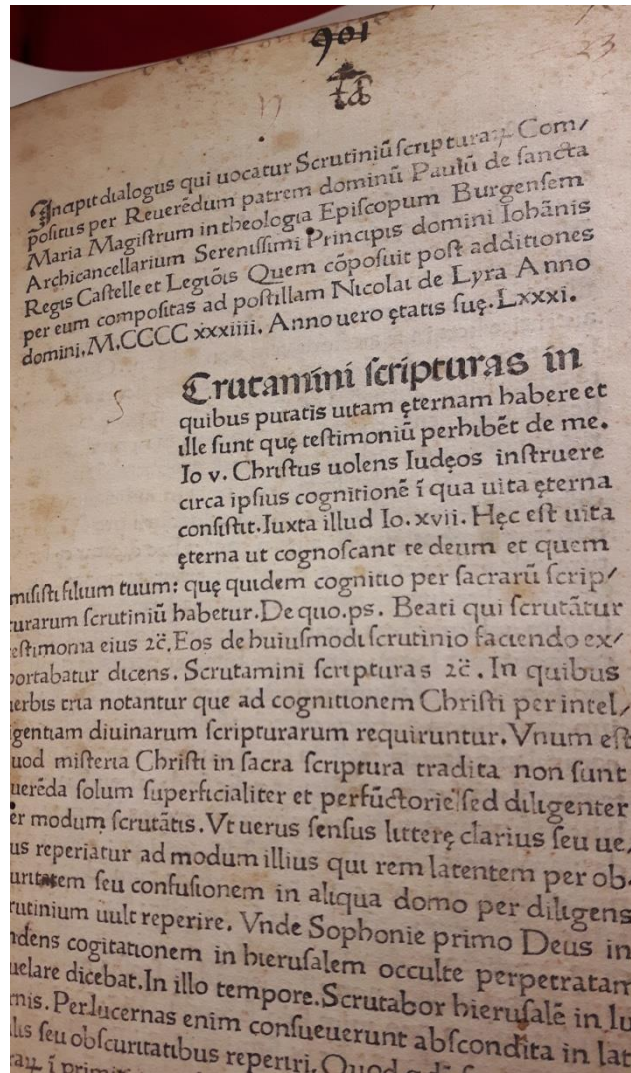 901
23
Incipit dialogus qui uocatur Scrutiniū ſcripturaꝝ Com/
poſitus per Reuerēdum patrem dominū Paulū de ſancta
Maria Magiſtrum in theologia Epiſcopum Burgenſem
Archicancellarium Sereniſſimi Principis domini Iohānis
Regis Caſtelle et Legiōis Quem cōpoſuit poſt additiones
per eum compoſitas ad poſtillam Nicolai de Lyra Anno
domini.M.CCCC xxxiiii. Anno uero ętatis ſuę.Lxxxi.
Crutamini ſcripturas in
quibus putatis uitam ęternam habere et
ille ſunt quę teſtimoniū perhibēt de me.
Io v. Chriſtus uolens Iudęos inſtruere
circa ipſius cognitionē ī qua uita ęterna
conſiſtit.Iuxta illud Io. xvii. Hęc eſt uita
ęterna ut cognoſcant te deum et quem
miſiſti filium tuum: quę quidem cognitio per ſacrarū ſcrip/
turarum ſcrutiniū habetur.De quo.ps. Beati qui ſcrutātur
eſtimonia eius ⁊c̄.Eos de huiuſmodi ſcrutinio faciendo ex/
ortabatur dicens. Scrutamini ſcripturas ⁊c̄. In quibus
uerbis tria notantur que ad cognitionem Chriſti per intel/
igentiam diuinarum ſcripturarum requiruntur. Vnum eſt
uod miſteria Chriſti in ſacra ſcriptura tradita non ſunt
uerēda ſolum ſuperficialiter et perfūctorie ſed diligenter
er modum ſcrutātis. Vt uerus ſenſus litterę clarius ſeu ue/
us reperiatur ad modum illius qui rem latentem per ob
uritatem ſeu confuſionem in aliqua domo per diligens
rutinium uult reperire. Vnde Sophonie primo Deus in
ndens cogitationem in hieruſalem occulte perpetratam
uelare dicebat.In illo tempore.Scrutabor hieruſalē in lu
rnis. Per lucernas enim conſueuerunt abſcondita in lat
lis ſeu obſcuritatibus reperiri. Quod